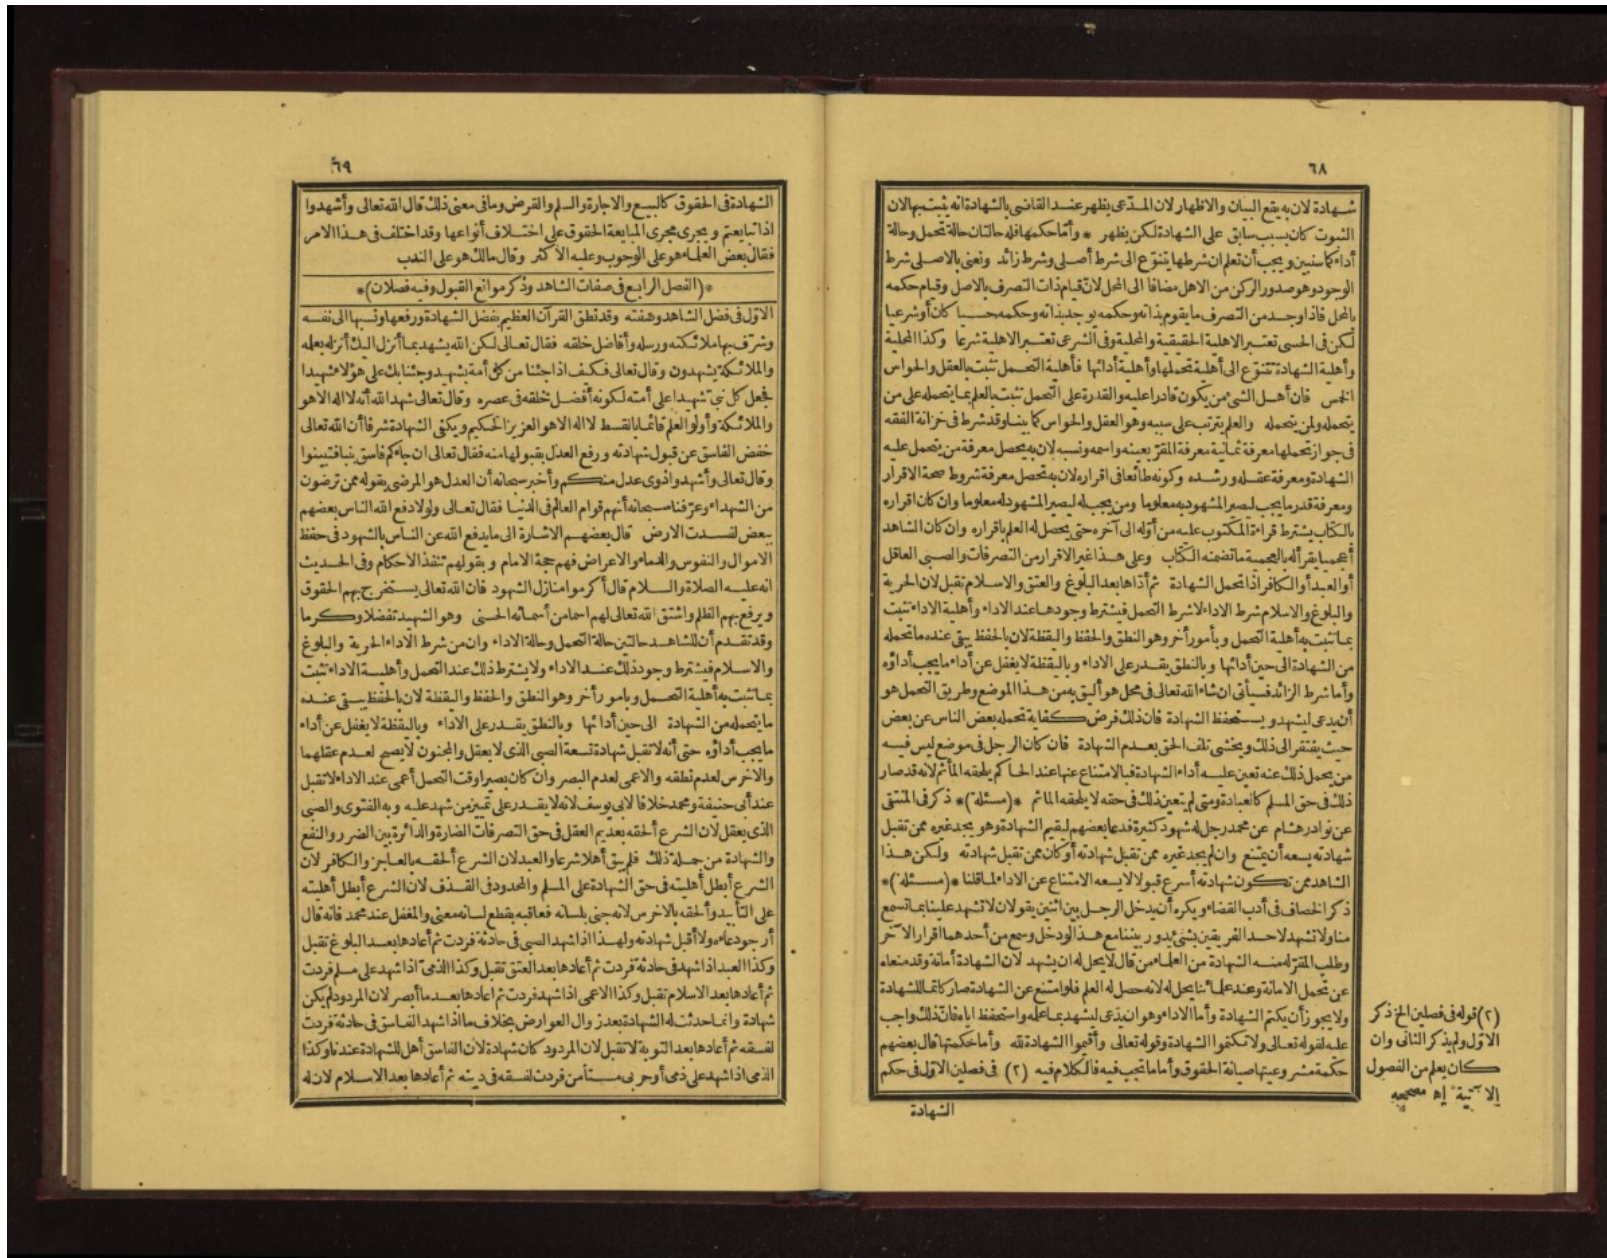 ٦٨
شهادة لان به يقع البيان والاظهار لان المدّعى يظهر عند القاضى بالشهادة انه يثبت بها لان
الثبوت كان بسبب سابق على الشهادة لكن يظهر * وأمّا حكمها فله حالتان حالة تحمل وحالة
أداء كما سنبين ويجب أن تعلم ان شرطها يتنوّع الى شرط أصلى وشرط زائد ونعنى بالاصلى شرط
الوجود وهو صدور الركن من الاهل مضافا الى المحل لانّ قيام ذات التصرف بالاصل وقيام حكمه
بالمحل فاذا وجد من التصرف ما يقوم بذاته وحكمه يوجد بذاته وحكمه حسا كان أو شرعيا
لكن فى الحسى تعتبر الاهلية الحقيقية والمحلية وفى الشرعى تعتبر الاهلية شرعا وكذا المحلية
وأهلية الشهادة تتنوّع الى أهلية تحملها وأهلية أدائها فأهلية التحمل تثبت بالعقل والحواس
الخمس فان أهل الشئ من يكون قادرا عليه والقدرة على التحمل تثبت بالعلم بما يتحمله على من
يتحمله ولمن يتحمله والعلم يترتب على سببه وهو العقل والحواس كما بينا وقد شرط فى خزانة الفقه
فى جواز تحملها معرفة ثمانية معرفة المقرّ بعينه واسمه ونسبه لان به يحصل معرفة من يتحمل عليه
الشهادة ومعرفة عقله ورشده وكونه طائعا فى اقراره لان به تحصل معرفة شروط صحة الاقرار
ومعرفة قدر ما يجب ليصير المشهود به معلوما ومن يجب له ليصير المشهود له معلوما وان كان اقراره
بالكتاب يشترط قراءة المكتوب عليه من أوّله الى آخره حتى يحصل له العلم باقراره وان كان الشاهد
أعجميا يقرأ له بالعجمية ما تضمنه الكتاب وعلى هذا غير الاقرار من التصرفات والصبى العاقل
أو العبد أو الكافر اذا تحمل الشهادة ثم أدّاها بعد البلوغ والعتق والاسلام تقبل لان الحرية
والبلوغ والاسلام شرط الاداء لا شرط التحمل فيشترط وجودها عند الاداء وأهلية الاداء تثبت
بما تثبت به أهلية التحمل وبأمور أخر وهو النطق والحفظ واليقظة لان بالحفظ يبقى عنده ما تحمله
من الشهادة الى حين أدائها وبالنطق يقدر على الاداء وباليقظة لا يغفل عن أداء ما يجب أداؤه
وأما شرط الزائد فسيأتى ان شاء الله تعالى فى محل هو أليق به من هذا الموضع وطريق التحمل هو
أن يدعى ليشهد ويستحفظ الشهادة فان ذلك فرض كفاية تحمله بعض الناس عن بعض
حيث يفتقر الى ذلك ويخشى تلف الحق بعدم الشهادة فان كان الرجل فى موضع ليس فيه
من يحمل ذلك عنه تعين عليه أداء الشهادة فبالامتناع عنها عند الحاكم يلحقه المأثم لانه قد صار
ذلك فى حق المسلم كالعبادة ومتى لم يتعين ذلك فى حقه لا يلحقه المأثم *(مسئلة)* ذكر فى المنتقى
عن نوادر هشام عن محمد رجل له شهود كثيرة فدعا بعضهم ليقيم الشهادة وهو يجد غيره ممن تقبل
شهادته يسعه أن يمتنع وان لم يجد غيره ممن تقبل شهادته أو كان ممن تقبل شهادته ولكن هذا
الشاهد ممن تكون شهادته أسرع قبولا لا يسعه الامتناع عن الاداء لما قلنا *(مسئلة)*
ذكر الخصاف فى أدب القضاء ويكره أن يدخل الرجل بين اثنين يقولان لا تشهد علينا بما تسمع
منا ولا تشهد لاحد الفريقين بشئ يدور بيننا مع هذا لو دخل وسمع من أحدهما اقرار الآخر
وطلب المقرّ له منه الشهادة من العلماء من قال لا يحل له ان يشهد لان الشهادة أمانة وقد منعاه
عن تحمل الامانة وعند علمائنا يحل له لانه حصل له العلم فلو امتنع عن الشهادة صار كاتما للشهادة
ولا يجوز أن يكتم الشهادة وأما الاداء وهو ان يدعى ليشهد بما علمه واستحفظ اياه فانّ ذلك واجب
عليه لقوله تعالى ولا تكتموا الشهادة وقوله تعالى وأقيموا الشهادة لله وأما حكمتها قال بعضهم
حكمة مشروعيتها صيانة الحقوق وأما ما تجب فيه فالكلام فيه (٢) فى فصلين الاوّل فى حكم
الشهادة
(٢) قوله فى فصلين الخ ذكر
الاوّل ولم يذكر الثانى وان
كان يعلم من الفصول
الآتية اه مصححه
٦٩
الشهادة فى الحقوق كالبيع والاجارة والسلم والقرض وما فى معنى ذلك قال الله تعالى وأشهدوا
اذا تبايعتم ويجرى مجرى المبايعة الحقوق على اختلاف أنواعها وقد اختلف فى هذا الامر
فقال بعض العلماء هو على الوجوب وعليه الاكثر وقال مالك هو على الندب
*(الفصل الرابع فى صفات الشاهد وذكر موانع القبول وفيه فصلان)*
الاوّل فى فضل الشاهد وصفته وقد نطق القرآن العظيم بفضل الشهادة ورفعها ونسبها الى نفسه
وشرّف بها ملائكته ورسله وأفاضل خلقه فقال تعالى لكن الله يشهد بما أنزل اليك أنزله بعلمه
والملائكة يشهدون وقال تعالى فكيف اذا جئنا من كل أمة بشهيد وجئنا بك على هؤلاء شهيدا
فجعل كل نبىّ شهيدا على أمته لكونه أفضل خلقه فى عصره وقال تعالى شهد الله أنه لا اله الا هو
والملائكة وأولو العلم قائما بالقسط لا اله الا هو العزيز الحكيم ويكفى الشهادة شرفا أن الله تعالى
خفض الفاسق عن قبول شهادته ورفع العدل بقبولها منه فقال تعالى ان جاءكم فاسق بنبا فتبينوا
وقال تعالى وأشهدوا ذوى عدل منكم وأخبر سبحانه أن العدل هو المرضى بقوله ممن ترضون
من الشهداء وعرّفنا سبحانه أنهم قوام العالم فى الدنيا فقال تعالى ولولا دفع الله الناس بعضهم
ببعض لفسدت الارض قال بعضهم الاشارة الى ما يدفع الله عن الناس بالشهود فى حفظ
الاموال والنفوس والدماء والاعراض فهم حجة الامام وبقولهم تنفذ الاحكام وفى الحديث
انه عليه الصلاة والسلام قال أكرموا منازل الشهود فان الله تعالى يستخرج بهم الحقوق
ويرفع بهم الظلم واشتق الله تعالى لهم اسما من أسمائه الحسنى وهو الشهيد تفضلا وكرما
وقد تقدم أن للشاهد حالتين حالة التحمل وحالة الاداء وان من شرط الاداء الحرية والبلوغ
والاسلام فيشترط وجود ذلك عند الاداء ولا يشترط ذلك عند التحمل وأهلية الاداء تثبت
بما تثبت به أهلية التحمل وبامور أخر وهو النطق والحفظ واليقظة لان بالحفظ يبقى عنده
ما يتحمله من الشهادة الى حين أدائها وبالنطق يقدر على الاداء وباليقظة لا يغفل عن أداء
ما يجب أداؤه حتى أنه لا تقبل شهادة تسعة الصبى الذى لا يعقل والمجنون لا يصح لعدم عقلهما
والاخرس لعدم نطقه والاعمى لعدم البصر وان كان بصيرا وقت التحمل أعمى عند الاداء لا تقبل
عند أبى حنيفة ومحمد خلافا لابى يوسف لانه لا يقدر على تمييز من شهد عليه وبه الفتوى والصبى
الذى يعقل لان الشرع ألحقه بعديم العقل فى حق التصرفات الضارة والدائرة بين الضرر والنفع
والشهادة من جملة ذلك فلم يبق أهلا شرعا والعبد لان الشرع ألحقه بالعاجز والكافر لان
الشرع أبطل أهليته فى حق الشهادة على المسلم والمحدود فى القذف لان الشرع أبطل أهليته
على التأبيد وألحقه بالاخرس لانه جنى بلسانه فعاقبه بقطع لسانه معنى والمغفل عند محمد فانه قال
أرجو دعاءه ولا أقبل شهادته ولهذا اذا شهد الصبى فى حادثة فردت ثم أعادها بعد البلوغ تقبل
وكذا العبد اذا شهد فى حادثة فردت ثم أعادها بعد العتق تقبل وكذا الذمىّ اذا شهد على مسلم فردت
ثم أعادها بعد الاسلام تقبل وكذا الاعمى اذا شهد فردت ثم اعادها بعد ما أبصر لان المردود لم يكن
شهادة وانما حدثت له الشهادة بعد زوال العوارض بخلاف ما اذا شهد الفاسق فى حادثة فردت
لفسقه ثم أعادها بعد التوبة لا تقبل لان المردود كان شهادة لان الفاسق أهل للشهادة عندنا وكذا
الذمى اذا شهد على ذمى أو حربى مستأمن فردت لفسقه فى دينه ثم أعادها بعد الاسلام لان له